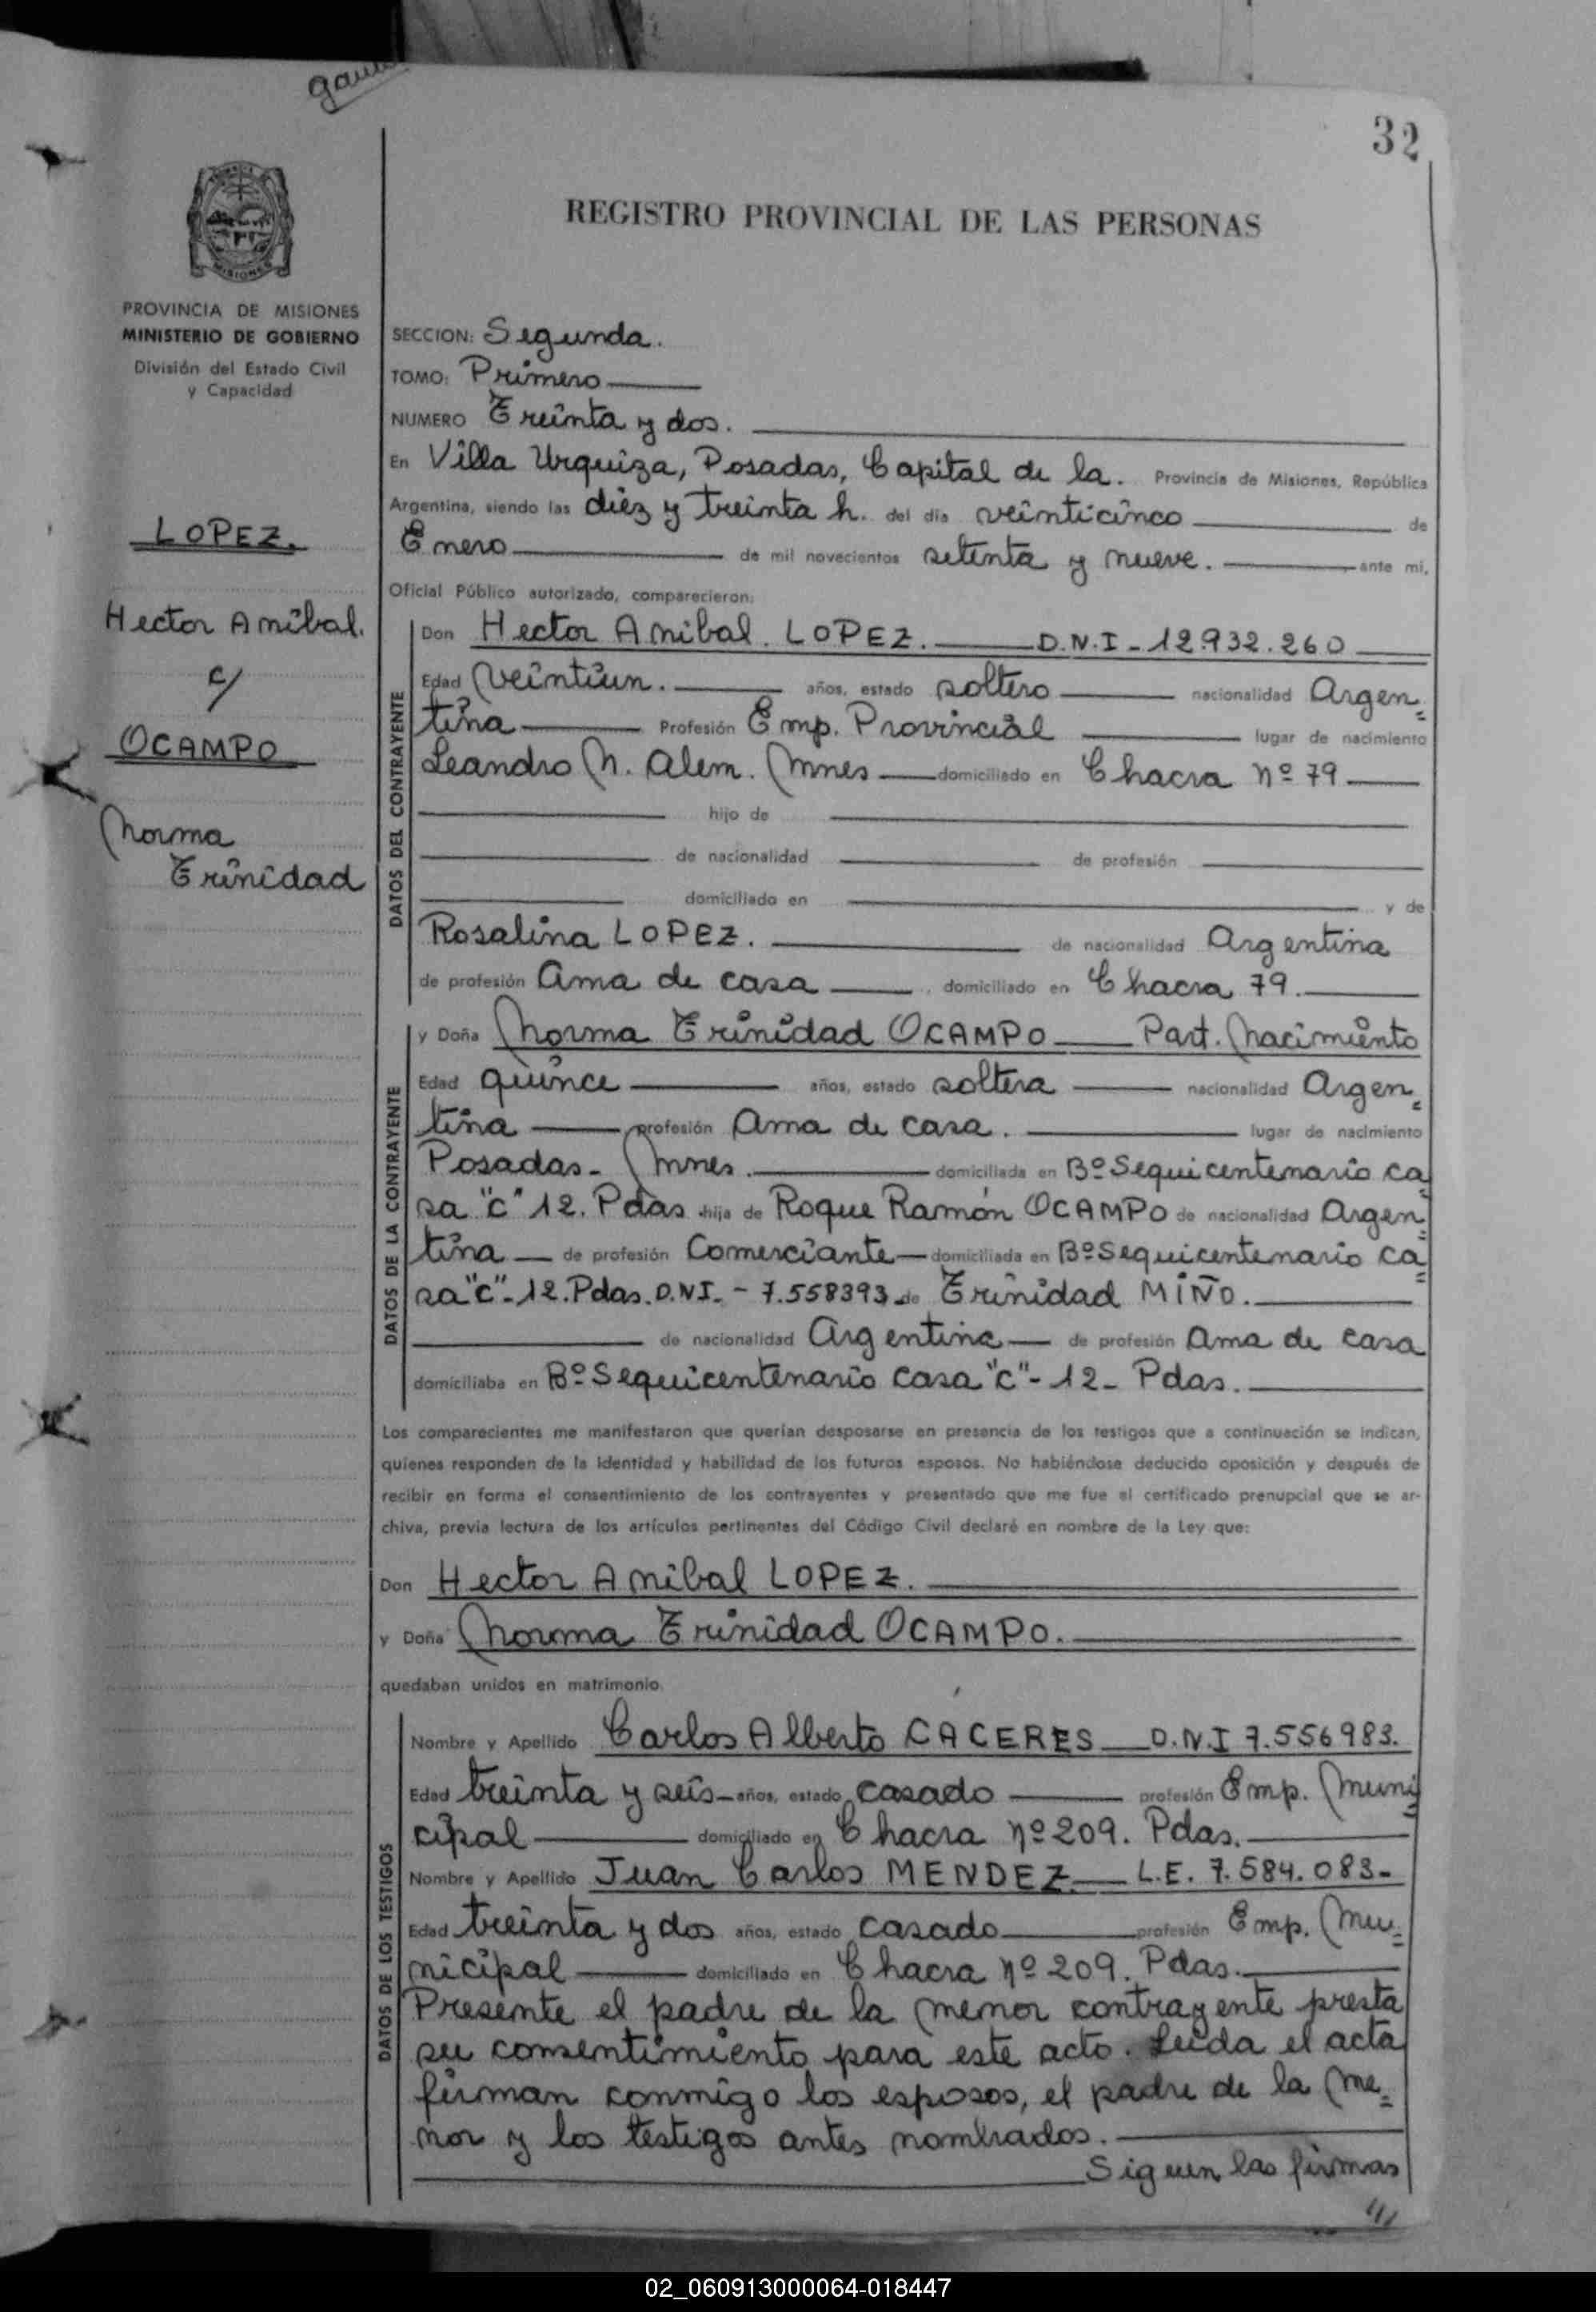 32
REGISTRO PROVINCIAL DE LAS PERSONAS
MISIONES
PROVINCIA DE MISIONES
MINISTERIO DE GOBIERNO
División del Estado Civil
y Capacidad
LOPEZ.
Hector Anibal.
c/
OCAMPO
Norma
Trinidad
SECCION: Segunda.
TOMO: Primero
NUMERO Treinta y dos.
En Villa Urquiza, Posadas, Capital de la. Provincia de Misiones, República
Argentina, siendo las diez y treinta h. del día veinticinco de
Enero de mil novecientos setenta y nueve. ante mi,
Oficial Público autorizado, comparecieron:
DATOS DEL CONTRAYENTE
Don Hector Anibal. LOPEZ. D.N.I - 12.932.260
Edad veintiun. años, estado soltero nacionalidad Argen=
tina Profesión Emp. Provincial lugar de nacimiento
Leandro N. Alem. Mnes domiciliado en Chacra nº 79
hijo de
de nacionalidad de profesión
domiciliado en y de
Rosalina LOPEZ. de nacionalidad Argentina
de profesión Ama de casa domiciliado en Chacra 79.
DATOS DE LA CONTRAYENTE
y Doña Norma Trinidad OCAMPO Part. Nacimiento
Edad quince años, estado soltera nacionalidad Argen=
tina profesión Ama de casa. lugar de nacimiento
Posadas - Mnes. domiciliada en Bº Sequicentenario ca=
sa "c" 12. Pdas hija de Roque Ramón OCAMPO de nacionalidad Argen=
tina de profesión Comerciante domiciliada en Bº Sequicentenario ca=
sa "c" - 12. Pdas. D.N.I. - 7.558393 de Trinidad MIÑO.
de nacionalidad Argentina de profesión Ama de casa
domiciliaba en Bº Sequicentenario casa "c" - 12 - Pdas.
Los comparecientes me manifestaron que querían desposarse en presencia de los testigos que a continuación se indican,
quienes responden de la identidad y habilidad de los futuros esposos. No habiéndose deducido oposición y después de
recibir en forma el consentimiento de los contrayentes y presentado que me fue el certificado prenupcial que se ar-
chiva, previa lectura de los artículos pertinentes del Código Civil declaré en nombre de la Ley que:
Don Hector Anibal LOPEZ.
y Doña Norma Trinidad OCAMPO.
quedaban unidos en matrimonio.
DATOS DE LOS TESTIGOS
Nombre y Apellido Carlos Alberto CÁCERES D.N.I 7.556983.
Edad treinta y seis años, estado casado profesión Emp. Muni=
cipal domiciliado en Chacra nº 209. Pdas.
Nombre y Apellido Juan Carlos MENDEZ L.E. 7.584.083-
Edad treinta y dos años, estado casado profesión Emp. Mu=
nicipal domiciliado en Chacra nº 209. Pdas.
Presente el padre de la menor contrayente presta
su consentimiento para este acto. Leida el acta
firman conmigo los esposos, el padre de la me=
nor y los testigos antes nombrados.
Siguen las firmas
02_060913000064-018447